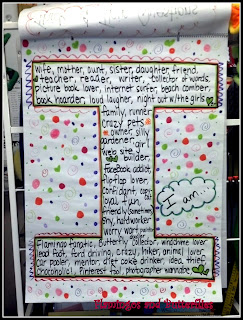 wife, mother, aunt, sister, daughter, friend,
teacher, reader, writer, collector of words,
picture book lover, internet surfer, beach comber,
book hoarder, loud laugher, night out w/the girls
family, runner
crazy pets
owner, silly
gardener, girl
web site
builder,
facebook addict,
flip flop lover,
confidant, copy
cat
loyal, fun
friendly, (sometimes)
shy, hard worker
worry wart
I am...
Flamingo fanatic, Butterfly collector, windchime lover
lead foot, ford driving, crazy, inker, animal lover
car pooler, mentor, diet coke drinker, idea thief,
chocoholic, Pinterest fool, photographer wannabe
Flamingos and Butterflies